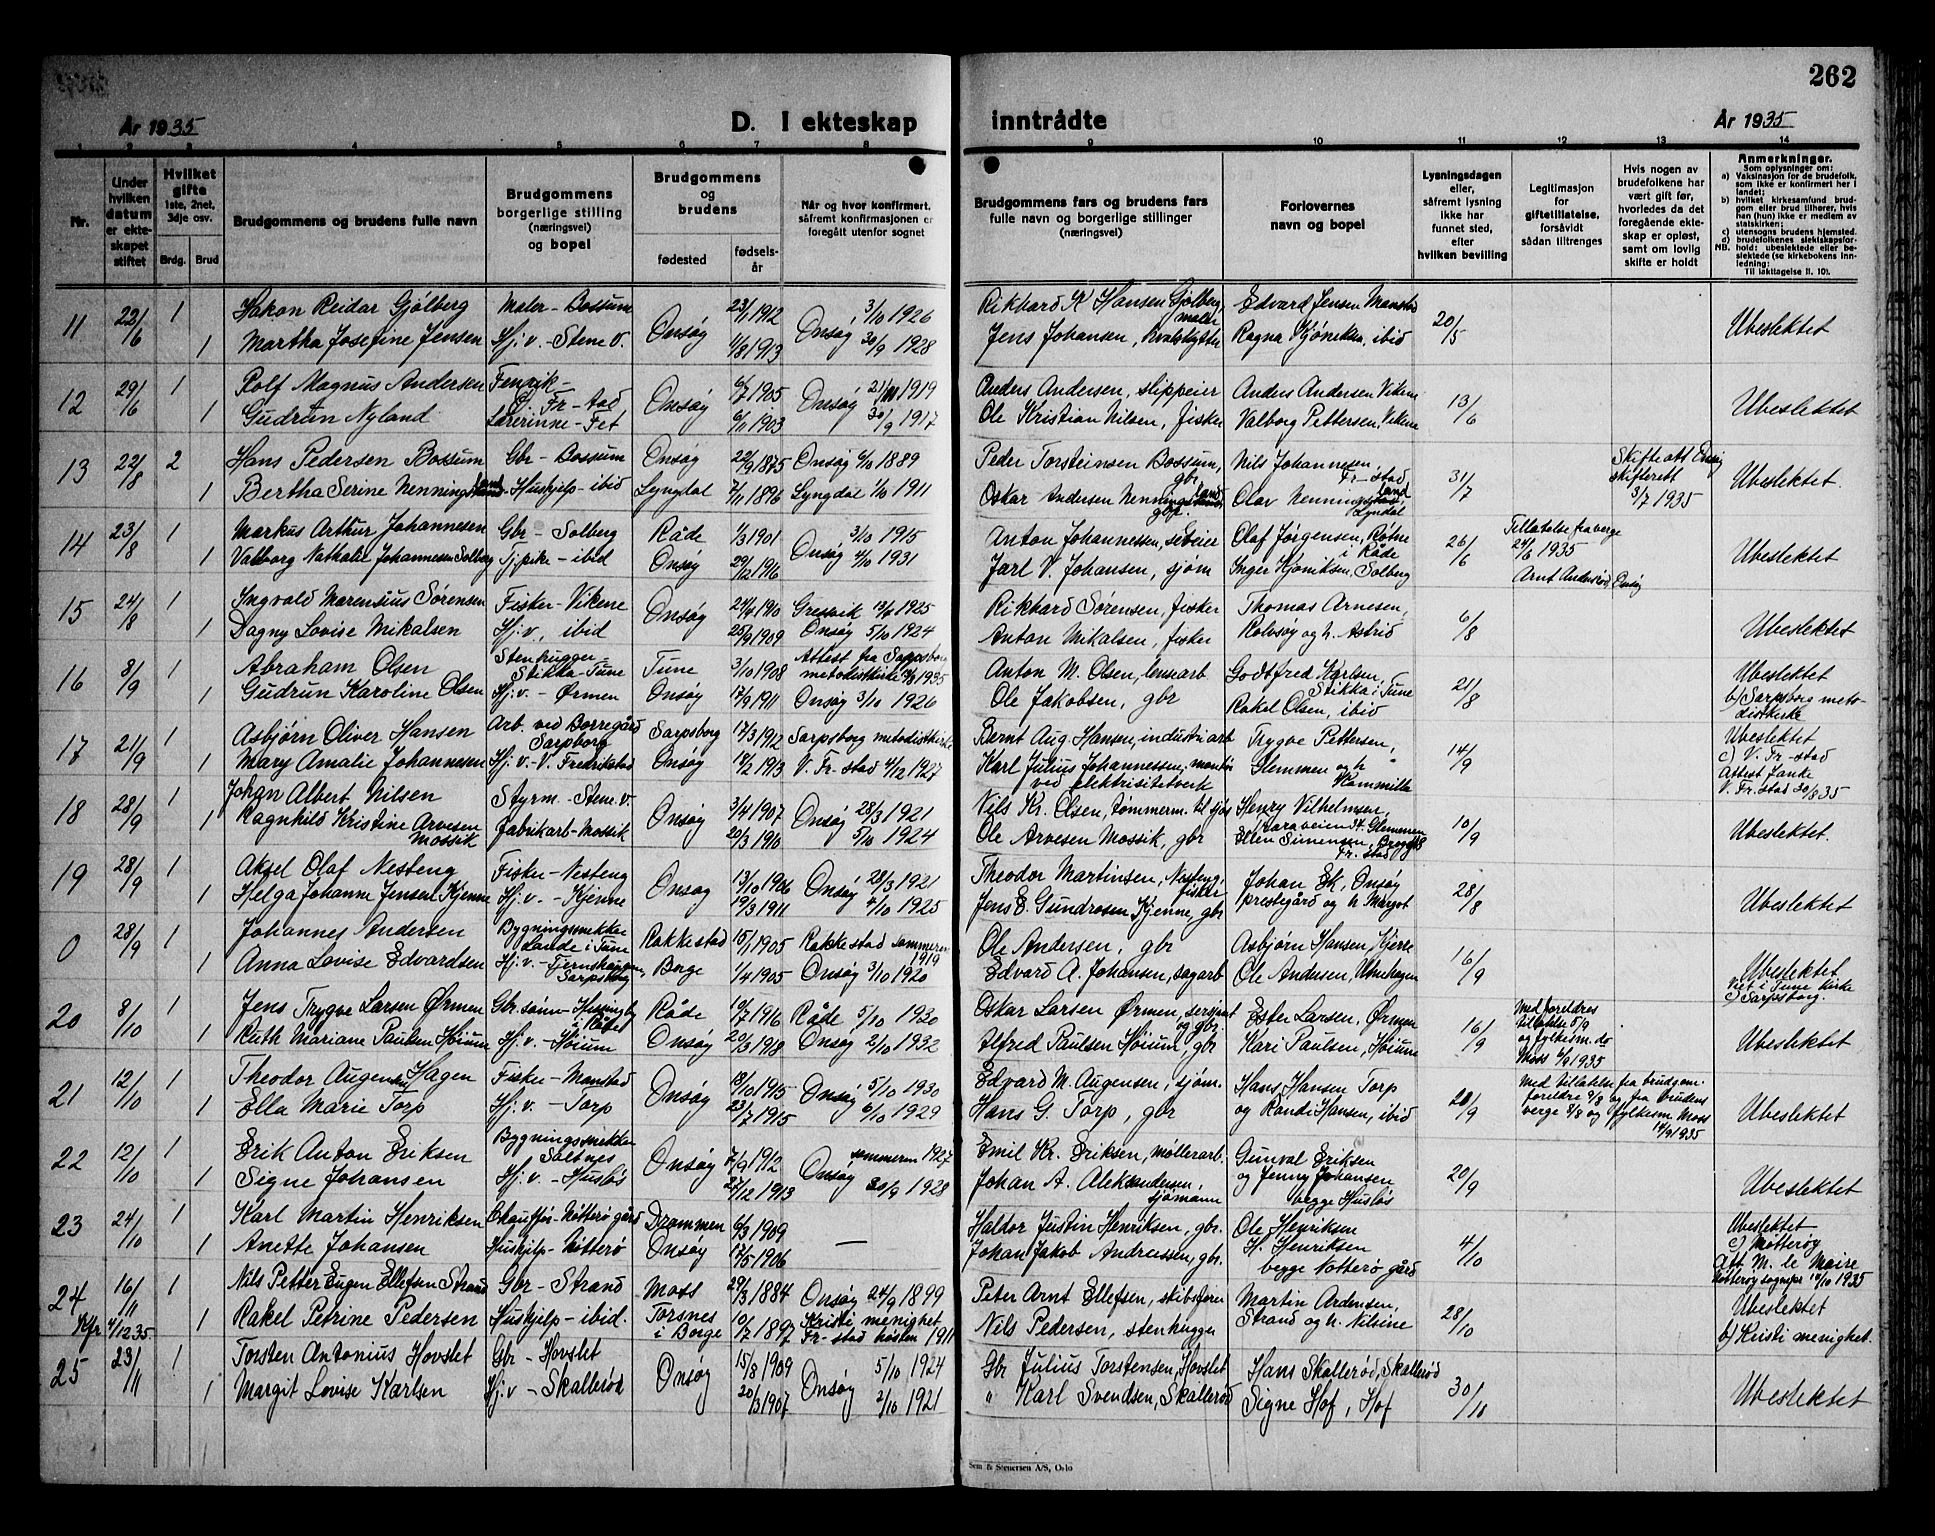 262
År 1935
D. I ekteskap
inntrådte
År 1935
1 2 3 4 5 6 7 8 9 10 11 12 13 14
Nr.
Under hvilken datum er ekteskapet stiftet
Hvilket gifte 1ste, 2net, 3dje osv.
Brdg. Brud
Brudgommens og brudens fulle navn
Brudgommens borgerlige stilling (næringsvei) og bopel
Brudgommens og brudens
fødested
fødselsår
Når og hvor konfirmert, såfremt konfirmasjonen er foregått utenfor sognet
Brudgommens fars og brudens fars fulle navn og borgerlige stillinger (næringsvei)
Forlovernes navn og bopel
Lysningsdagen eller, såfremt lysning ikke har funnet sted, efter hvilken bevilling
Legitimasjon for giftetillatelse, forsåvidt sådan tiltrenges
Hvis nogen av brudefolkene har vært gift før, hvorledes da det foregående ekteskap er opløst, samt om lovlig skifte er holdt
Anmerkninger.
Som oplysninger om:
a) Vaksinasjon for de brudefolk, som ikke er konfirmert her i landet;
b) hvilket kirkesamfund brudgom eller brud tilhører, hvis han (hun) ikke er medlem av statskirken;
c) utensogns brudens hjemsted.
d) brudefolkenes slektskapsforhold: ubeslektede eller beslektede (se kirkebokens innledning:
NB.
Til iakttagelse II. 10).
11 22/6 1 Håkon Reidar Gjølberg Maler - Bossum Onsøy 23/1 1912 Onsøy 3/10 1926 Rikhard K Hansen Gjølberg, maler Edvard Jensen Manstad 20/5 Ubeslektet
1 Martha Josefine Jensen Hj.v. - Stene v. 1/8 1913 30/9 1928 Jens Johansen, hvalskytter Ragna Kjöniksen, ibid
12 29/6 1 Rolf Magnus Andersen Fenrik - Fr-stad Onsøy 6/7 1905 Onsøy 1919 Anders Andersen, slippeier Anders Andersen Vikene 13/6 Ubeslektet
1 Gudrun Nyland Lærerinne - Fet 6/11 1903 30/9 1917 Ole Kristian Nilsen, fisker Valborg Pettersen, Vikene
13 22/8 2 Hans Pedersen Bossum Gbr - Bossum Onsøy 22/9 1875 Onsøy 6/10 1889 Peder Torsteinsen Bossum, gbr Nils Johannesen, Fr-stad 31/7 Skifte att Onsøy skifterett 3/7 1935 Ubeslektet.
1 Bertha Serine Nenningsland Huskjelp - ibid Lyngdal 7/11 1896 Lyngdal 1/10 1911 Oskar Andersen Nenningsland, gbr. Olav Nenningsland Lyngdal
14 23/8 1 Markus Arthur Johannesen Gbr - Solberg Råde 1/3 1901 Onsøy 3/10 1915 Anton Johannessen, seleier Olaf Jørgensen, Røtne i Råde 26/6 Tillatelse fra verge 24/6 1935 Ubeslektet
1 Valborg Nathalie Johannesen Solberg Tj.pike - ibid Onsøy 29/12 1916 4/10 1931 Jarl V. Johansen, sjøm Inger Kjøniksen, Solberg Arnt Anderstød, Onsøy
15 24/8 1 Ingvald Marensius Sørensen Fisker - Vikene Onsøy 24/4 1910 Gressvik 13/4 1925 Rikhard Sørensen, fisker Thomas Arnesen, 6/8 Ubeslektet
1 Dagny Lovise Mikalsen Hj.v., ibid 25/9 1909 Onsøy 5/10 1924 Anton Mikalsen, fisker Rolvsøy og h. Astrid
16 8/9 1 Abraham Olsen Stenhugger - Stikka - Tune Tune 3/10 1908 Attest fra Sarpsborg metodistkirke 1935 Anton M. Olsen, lensearb Godtfred Karlsen, Stikka i Tune 21/8 Ubeslektet
1 Gudrun Karoline Olsen Hj.v. - Ørmen Onsøy 17/9 1911 Onsøy 3/10 1926 Ole Jakobsen, gbr Rakel Olsen, ibid b) Sarpsborg metodistkirke
17 21/9 1 Asbjørn Oliver Hansen Arb. ved Borregård Sarpsborg Sarpsborg 17/3 1912 Sarpsborg metodistkirke Bernt Aug. Hansen, industriarb Trygve Pettersen, 14/9 Ubeslektet
1 Mary Amalie Johannesen Hj.v. - V. Fredrikstad Onsøy 14/2 1913 V. Fr-stad 4/12 1927 Karl Julius Johannessen, montør ved elektrisitetverk Glemmen og h " Kammilla c) V. Fr-stad Attest Lande V. Fr.stad 30/8 35
18 28/9 1 Johan Albert Nilsen Styrm - Stene v. Onsøy 3/4 1907 Onsøy 28/3 1921 Nils Kr. Olsen, tømmerm. til sjøs Henry Vilhelmsen, 10/9 Ubeslektet.
1 Ragnhild Kristine Arvesen Mossik Fabrikarb - Mossik 20/3 1910 5/10 1924 Ole Arvesen Mossik, gbr Ellen Simensen, Fr. stad
19 28/9 1 Aksel Olaf Nesteng Fisker - Nesteng Onsøy 13/10 1906 Onsøy 28/3 1921 Theodor Martinsen, Nesteng, fisker Johan Ek, Onsøy 28/8 Ubeslektet
1 Helga Johanne Jensen Kjenne Hj.v. - Kjenne 19/3 1911 4/10 1925 Jens E. Gundrosen Kjenne, gbr prestegård og h. Margot
0 28/9 1 Johannes Andersen Bygningssnekker Lande i Tune Rakkestad 15/1 1905 Rakkestad sommeren 1919 Ole Andersen, gbr Asbjørn Hansen, Kjerre 16/9 Ubeslektet
1 Anna Lovise Edvardsen Hj.v. - Sarpsborg Borge 1/4 1905 Onsøy 3/10 1920 Edvard A. Johansen, sagarb Ole Andersen, Viet i Tune kirke c) Sarpsborg.
20 8/10 1 Jens Trygve Larsen Ørmen Gbr.sønn - Husingby i Råde Råde 14/7 1916 Råde 5/10 1930 Oskar Larsen Ørmen, sersjant og gbr. Ester Larsen, Ørmen 16/9 Med foreldres tillatelse 5/9 og fylkesm. do Moss 6/9 1935 Ubeslektet
1 Ruth Mariane Paulsen Høium Hj.v. - Høium Onsøy 20/3 1918 Onsøy 2/10 1932 Alfred Paulsen Høium, gbr Kari Paulsen, Høium
21 12/10 1 Theodor Augensen Hagen Fisker - Manstad Onsøy 18/10 1915 Onsøy 5/10 1930 Edvard M. Augensen, sjøm. Hans Hansen Torp 20/9 Med tillatelse fra brudgom. foreldre 9/8 og fra brudens verge 8/8 og fylkesm. Moss 14/9 1935 Ubeslektet
1 Ella Marie Torp Hj.v. - Torp 23/7 1915 6/10 1929 Hans G. Torp, gbr og Randi Hansen, ibid
22 12/10 1 Erik Anton Eriksen Bygningssnekker Saltnes Onsøy 7/9 1912 Onsøy sommeren 1927 Emil Kr. Eriksen, møllerarb. Gunval Eriksen 20/9 Ubeslektet
1 Signe Johansen Hj.v. - Huslös 22/12 1913 30/9 1928 Johan A. Aleksandersen, sjømann og Jenny Johansen begge Huslös
23 24/10 1 Karl Martin Henriksen Chauffør - Nötterø gård Drammen 6/3 1909 — Haldor Justin Henriksen, gbr. Ole Henriksen 4/10 Ubeslektet
1 Anette Johansen Huskjelp - Nötterø Onsøy 17/5 1906 Johan Jakob Andreassen, gbr. H. Henriksen begge Nötterø gård c) Nötterøy Att M. le Maire Nötterøy sognepr 10/10 1935
24 16/11 1 Nils Petter Eugen Ellefsen Strand Gbr - Strand Moss 29/3 1884 Onsøy 24/9 1899 Peter Arnt Ellefsen, skibsfører Martin Andersen, 28/10 Ubeslektet
Kfr 4/12 35 1 Rakel Petrine Pedersen Huskjelp - ibid. Torsnes i Borge 10/7 1897 Kristi menighet Fr-stad høsten 1911 Nils Pedersen, stenhugger Strand og h. Nilsine b) Kristi menighet.
25 23/11 1 Torsten Antonius Hovslet Gbr - Hovslet Onsøy 15/8 1909 Onsøy 5/10 1924 Gbr Julius Torstensen, Hovslet Hans Skallerød, Skallerød 30/10 Ubeslektet
1 Margit Lovise Karlsen Hj.v - Skallerød 20/3 1907 2/10 1921 " Karl Svendsen, Skallerød Signe Hof, Hof
Sem & Stenersen A/S, Oslo